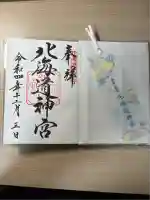 奉拝
北海道神宮
令和四年十二月三日